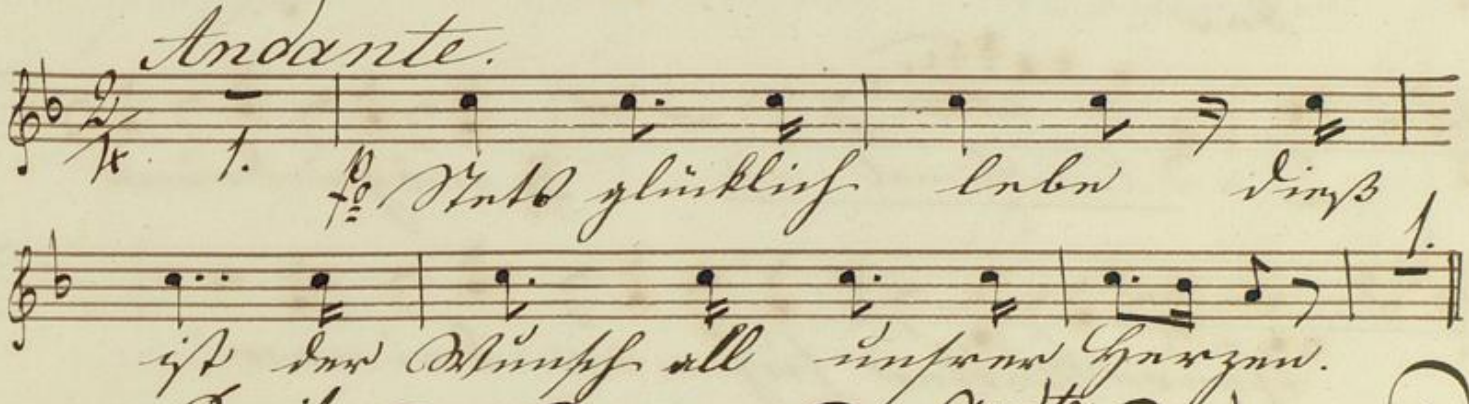 Andante.
2/4 1.
po Stets glücklich lebe dieß
1.
ist der Wunsch all unsrer Herzen.